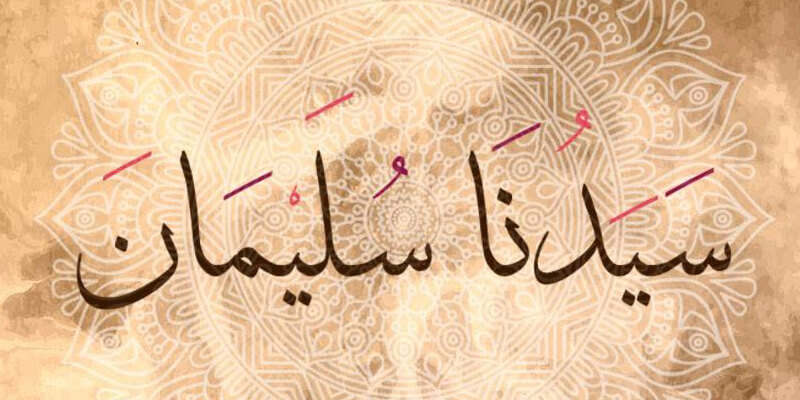 سَيَدُنَا سُلَيْمَانَ